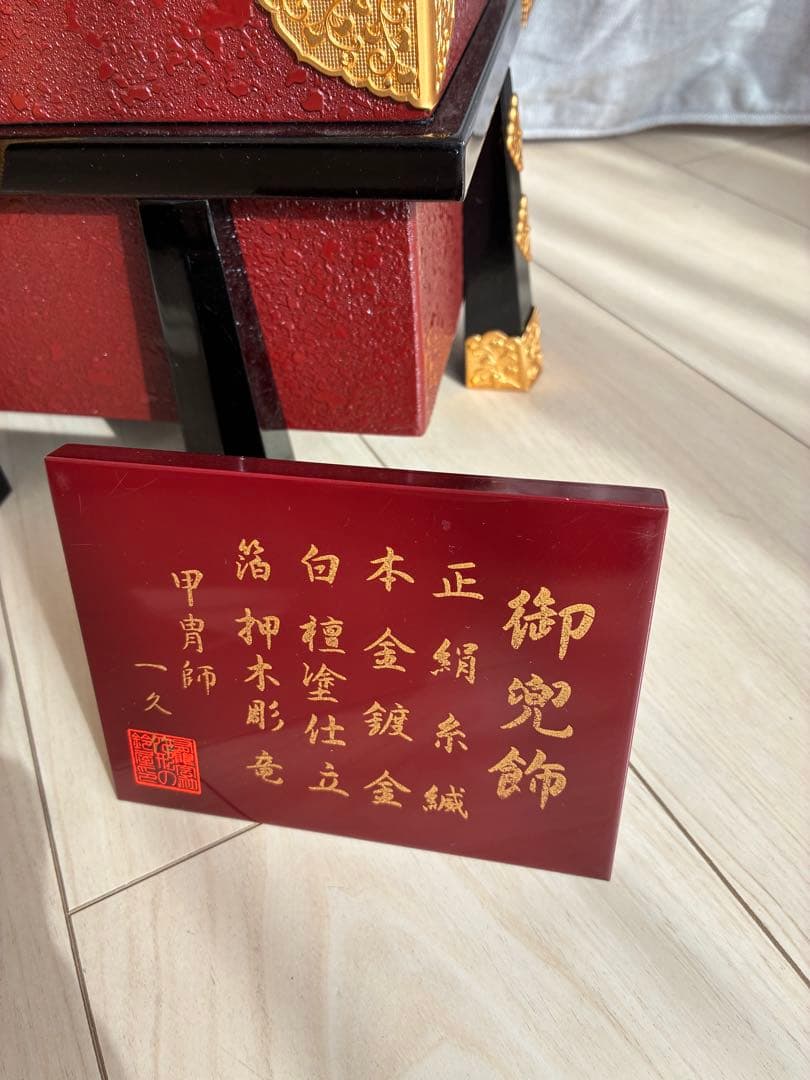 御兜飾
正絹糸縅
本金鍍金
白檀塗仕立
箔押木彫竜
甲冑師
一久